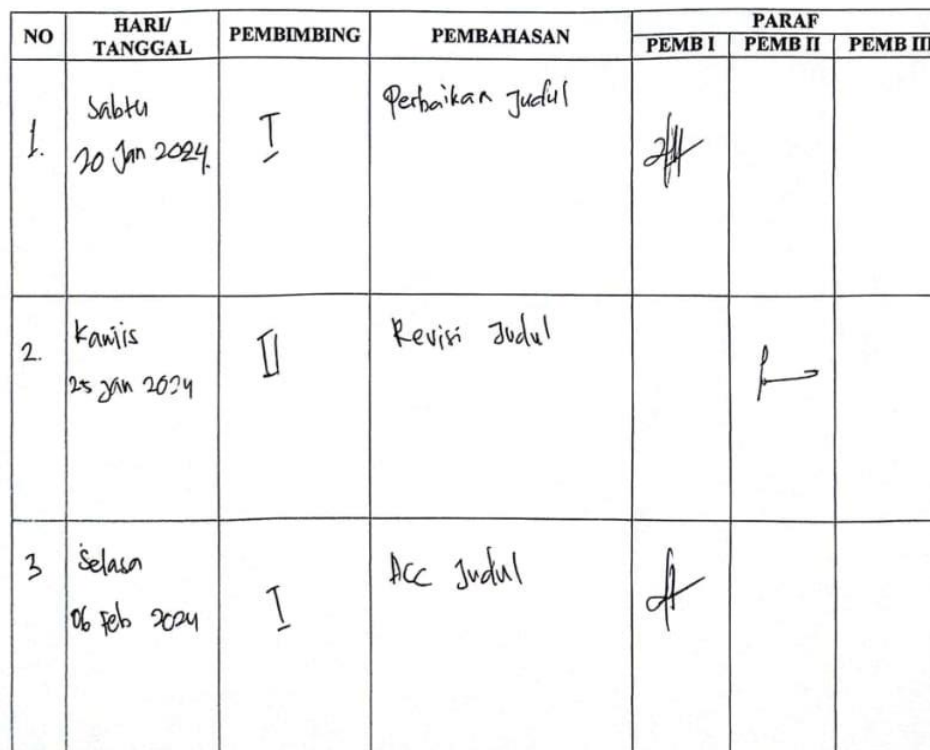 NO
HARI/
TANGGAL
PEMBIMBING
PEMBAHASAN
PARAF
PEMB I
PEMB II
PEMB III
1.
Sabtu
20 Jan 2024.
I
Perbaikan Judul
2.
Kamis
25 Jan 2024
II
Revisi Judul
3
Selasa
06 Feb 2024
I
ACC Judul